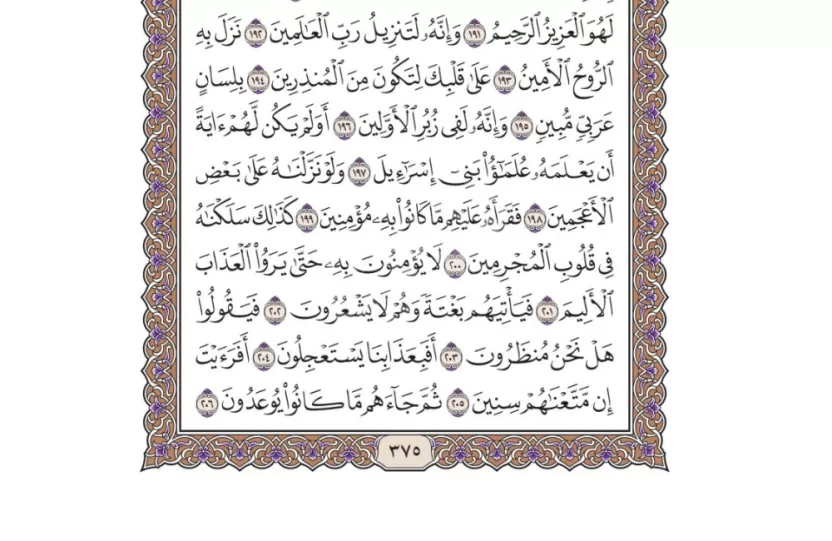 لَهُوَ ٱلْعَزِيزُ ٱلرَّحِيمُ ١٩١ وَإِنَّهُۥ لَتَنزِيلُ رَبِّ ٱلْعَٰلَمِينَ ١٩٢ نَزَلَ بِهِ
ٱلرُّوحُ ٱلْأَمِينُ ١٩٣ عَلَىٰ قَلْبِكَ لِتَكُونَ مِنَ ٱلْمُنذِرِينَ ١٩٤ بِلِسَانٍ
عَرَبِيٍّ مُّبِينٍ ١٩٥ وَإِنَّهُۥ لَفِي زُبُرِ ٱلْأَوَّلِينَ ١٩٦ أَوَلَمْ يَكُن لَّهُمْ ءَايَةً
أَن يَعْلَمَهُۥ عُلَمَٰٓؤُا۟ بَنِيٓ إِسْرَٰٓءِيلَ ١٩٧ وَلَوْ نَزَّلْنَٰهُ عَلَىٰ بَعْضِ
ٱلْأَعْجَمِينَ ١٩٨ فَقَرَأَهُۥ عَلَيْهِم مَّا كَانُوا۟ بِهِۦ مُؤْمِنِينَ ١٩٩ كَذَٰلِكَ سَلَكْنَٰهُ
فِي قُلُوبِ ٱلْمُجْرِمِينَ ٢٠٠ لَا يُؤْمِنُونَ بِهِۦ حَتَّىٰ يَرَوُا۟ ٱلْعَذَابَ
ٱلْأَلِيمَ ٢٠١ فَيَأْتِيَهُم بَغْتَةً وَهُمْ لَا يَشْعُرُونَ ٢٠٢ فَيَقُولُوا۟
هَلْ نَحْنُ مُنظَرُونَ ٢٠٣ أَفَبِعَذَابِنَا يَسْتَعْجِلُونَ ٢٠٤ أَفَرَءَيْتَ
إِن مَّتَّعْنَٰهُمْ سِنِينَ ٢٠٥ ثُمَّ جَآءَهُم مَّا كَانُوا۟ يُوعَدُونَ ٢٠٦
٣٧٥